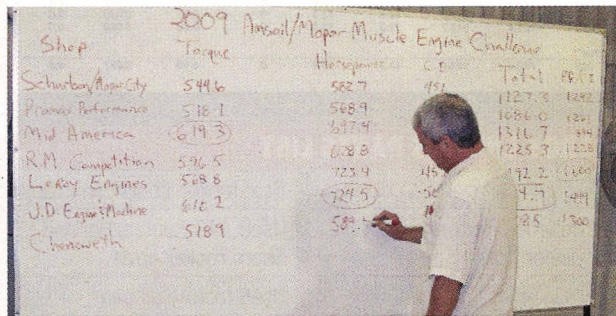 2009 Amsoil/Mopar Muscle Engine Challenge
Shop Torque Horsepower C.I. Total
Schurbon/MoparCity 544.6 582.7 451 1127.3 1292
Promar Performance 518.1 568.9 1086.0
Mid America 619.3 697.4 1316.7
R.M. Competition 596.5 628.8 1225.3 1228
LeRoy Engines 568.8 723.4 92.2
J.D. Engine & Machine 610.2 724.5 4.7
Chenoweth 518.9 589. 1300